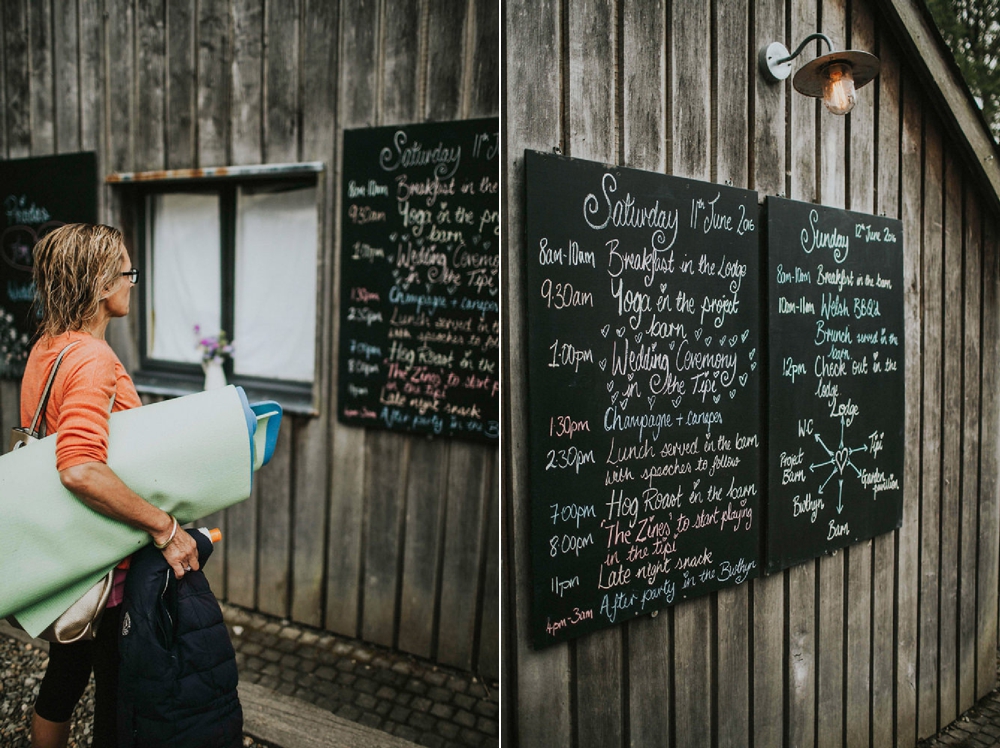 Saturday 11th J
8am-10am Breakfast in the
9:30am Yoga in the pro
barn
1:00pm Wedding Ceremony
in the Tipi
1:30pm Champagne + canapes
2:30pm Lunch served in t
with speeches to fo
7:00pm Hog Roast in the b
The Zines to start p
in the tipi
Late night snack
After party in the B
Saturday 11th June 2016
8am-10am Breakfast in the Lodge
9:30am Yoga in the project
barn
1:00pm Wedding Ceremony
in the Tipi
1:30pm Champagne + canapes
2:30pm Lunch served in the barn
with speeches to follow
7:00pm Hog Roast in the barn
8:00pm 'The Zines' to start playing
in the tipi
11pm Late night snack
4pm-3am After party in the Bwthyn
Sunday 12th June 2016
8am-10am Breakfast in the barn
10am-11am Welsh BBQ'd
Brunch served in the
barn
12pm Check out in the
lodge
Lodge
WC
Tipi
Project
Barn
Garden
pavilion
Bwthyn
Barn